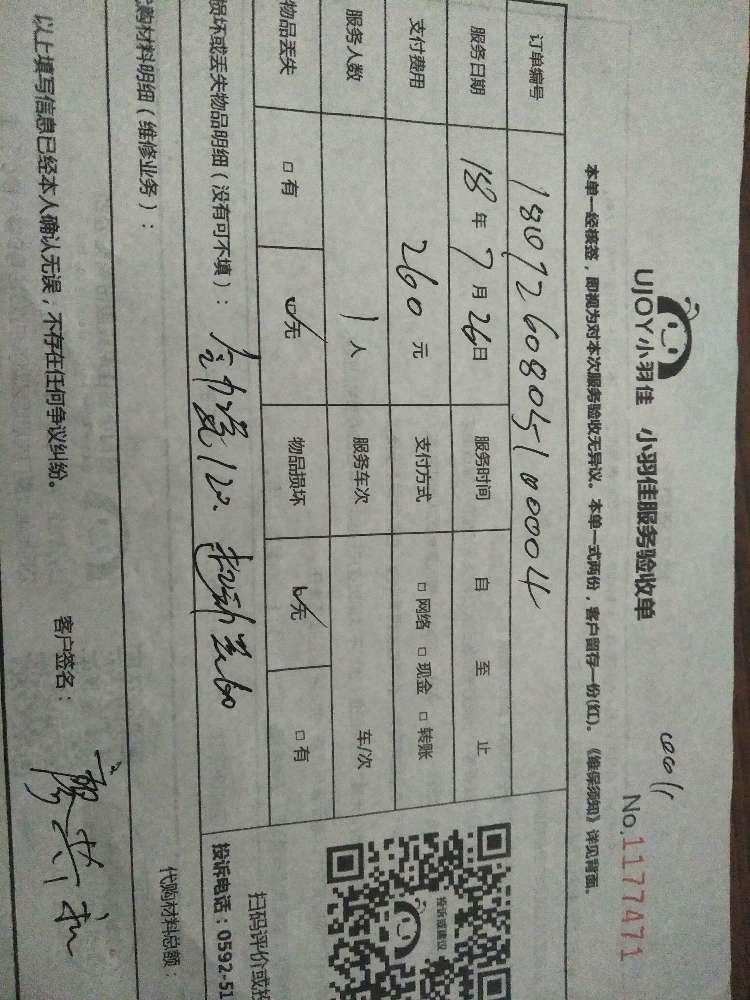 UJOY小羽佳 小羽佳服务验收单
No.1177471
本单一经核签，即视为对本次服务验收无异议。本单一式两份，客户留存一份(红)。《维保须知》详见背面。
订单编号 180726080510004
服务日期 18年7月26日 服务时间 自 至 止
支付费用 260元 支付方式 □网络 □现金 □转账
服务人数 1人 服务车次 车/次
物品丢失 □有 ☑无 物品损坏 ☑无 □有
损坏或丢失物品明细（没有可不填）：
购材料明细（维修业务）：
代购材料总额：
以上填写信息已经本人确认无误，不存在任何争议纠纷。
客户签名：
投诉或建议
扫码评价或投
投诉电话：0592-51